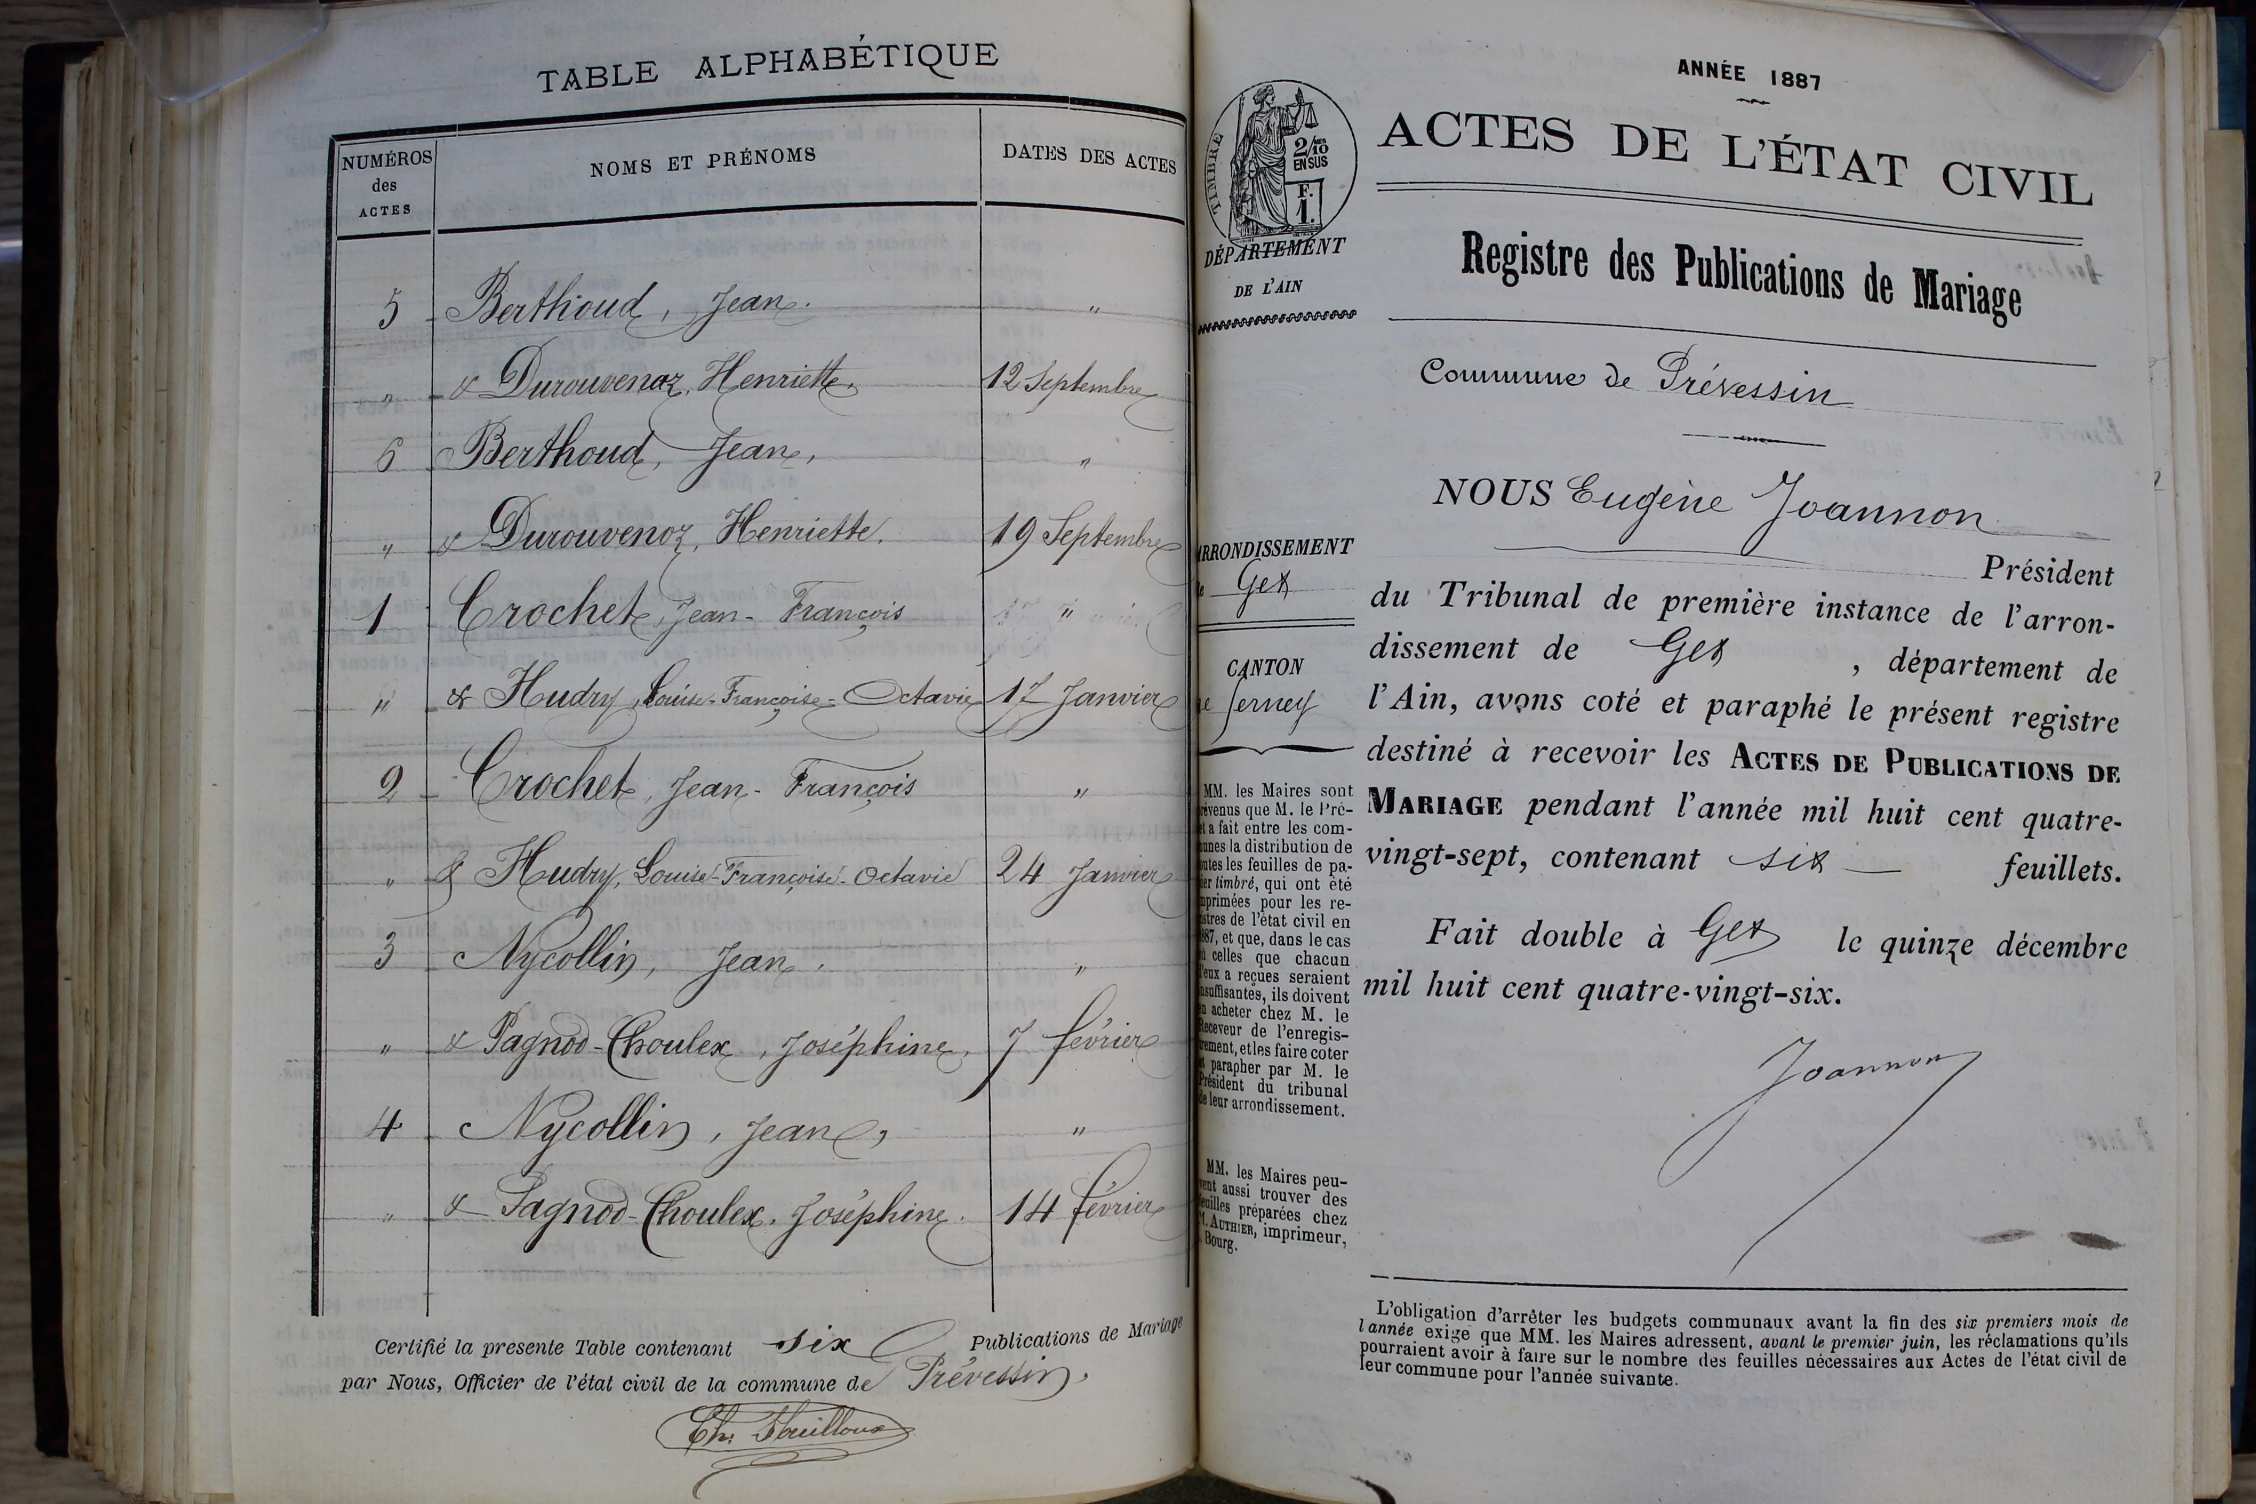 TABLE ALPHABÉTIQUE
NUMÉROS
des
ACTES
NOMS ET PRÉNOMS
DATES DES ACTES
5 Berthoud, Jean. "
" & Durouvenoz, Henriette, 12 Septembre
6 Berthoud, Jean, "
" & Durouvenoz, Henriette. 19 Septembre
1 Crochet, Jean-François "
" & Hudry, Louise-Françoise-Octavie 17 Janvier
2 Crochet, Jean-François "
" & Hudry, Louise-Françoise-Octavie 24 Janvier
3 Nycollin, Jean, "
" & Pagnod-Choulex, Joséphine, 7 février
4 Nycollin, Jean, "
" & Pagnod-Choulex, Joséphine. 14 février
Certifié la presente Table contenant six Publications de Mariage
par Nous, Officier de l'état civil de la commune de Prévessin.
ANNÉE 1887
TIMBRE
2/10
EN SUS
F.
1.
DÉPARTEMENT
DE L'AIN
ACTES DE L'ÉTAT CIVIL
Registre des Publications de Mariage
Commune de Prévessin
ARRONDISSEMENT
de Gex
CANTON
de Ferney
MM. les Maires sont
prévenus que M. le Pré-
fet a fait entre les com-
munes la distribution de
toutes les feuilles de pa-
pier timbré, qui ont été
imprimées pour les re-
gistres de l'état civil en
1887, et que, dans le cas
où celles que chacun
d'eux a reçues seraient
insuffisantes, ils doivent
en acheter chez M. le
Receveur de l'enregis-
trement, et les faire coter
et parapher par M. le
Président du tribunal
de leur arrondissement.
MM. les Maires peu-
vent aussi trouver des
feuilles préparées chez
M. AUTHIER, imprimeur,
à Bourg.
NOUS Eugène Joannon
Président
du Tribunal de première instance de l'arron-
dissement de Gex, département de
l'Ain, avons coté et paraphé le présent registre
destiné à recevoir les ACTES DE PUBLICATIONS DE
MARIAGE pendant l'année mil huit cent quatre-
vingt-sept, contenant six feuillets.
Fait double à Gex le quinze décembre
mil huit cent quatre-vingt-six.
Joannon
L'obligation d'arrêter les budgets communaux avant la fin des six premiers mois de
l'année exige que MM. les Maires adressent, avant le premier juin, les réclamations qu'ils
pourraient avoir à faire sur le nombre des feuilles nécessaires aux Actes de l'état civil de
leur commune pour l'année suivante.